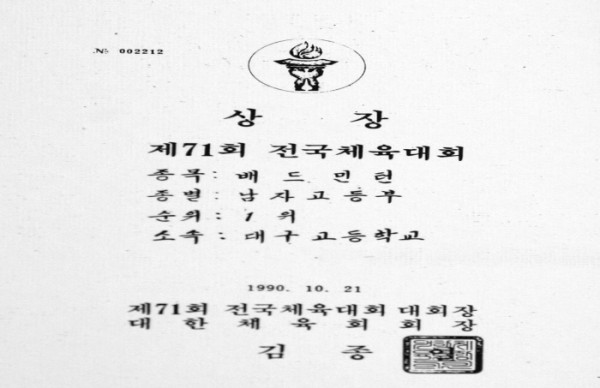 № 002212
상 장
제71회 전국체육대회
종목: 배 드 민 턴
종별: 남자고등부
순위: 1 위
소속: 대구고등학교
1990. 10. 21
제71회 전국체육대회 대회장
대 한 체 육 회 회 장
김 종